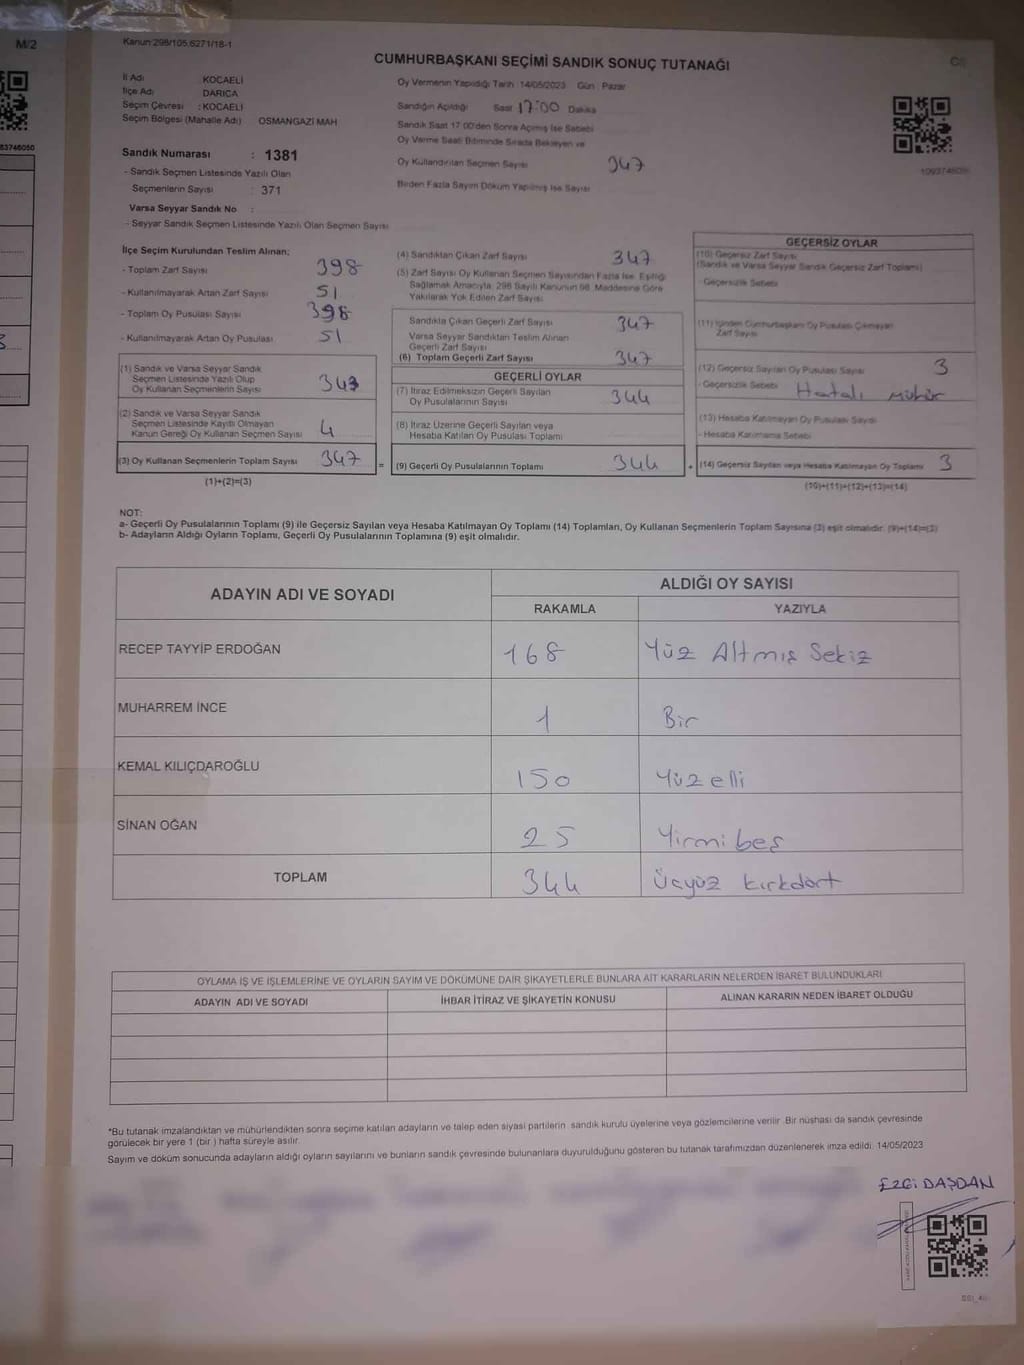 M/2
Kanun:298/105.6271/18-1
CUMHURBAŞKANI SEÇİMİ SANDIK SONUÇ TUTANAĞI
İl Adı KOCAELİ
İlçe Adı DARICA
Seçim Çevresi : KOCAELİ
Seçim Bölgesi (Mahalle Adı) OSMANGAZI MAH
Sandık Numarası : 1381
- Sandık Seçmen Listesinde Yazılı Olan
Seçmenlerin Sayısı : 371
Varsa Seyyar Sandık No :
- Seyyar Sandık Seçmen Listesinde Yazılı Olan Seçmen Sayısı
Oy Vermenin Yapıldığı Tarih 14/05/2023 Gün : Pazar
Sandığın Açıldığı Saat 17:00 Dakika
Sandık Saat 17:00'den Sonra Açılmış İse Sebebi
Oy Verme Saati Bitiminde Sırada Bekleyen ve
Oy Kullandırılan Seçmen Sayısı 347
Birden Fazla Sayım Döküm Yapılmış İse Sayısı
İlçe Seçim Kurulundan Teslim Alınan;
- Toplam Zarf Sayısı 398
- Kullanılmayarak Artan Zarf Sayısı 51
- Toplam Oy Pusulası Sayısı 398
- Kullanılmayarak Artan Oy Pusulası 51
(1) Sandık ve Varsa Seyyar Sandık
Seçmen Listesinde Yazılı Olup
Oy Kullanan Seçmenlerin Sayısı 343
(2) Sandık ve Varsa Seyyar Sandık
Seçmen Listesinde Kayıtlı Olmayan
Kanun Gereği Oy Kullanan Seçmen Sayısı 4
(3) Oy Kullanan Seçmenlerin Toplam Sayısı 347
(1)+(2)=(3)
(4) Sandıktan Çıkan Zarf Sayısı 347
(5) Zarf Sayısı Oy Kullanan Seçmen Sayısından Fazla İse, Eşitliği
Sağlamak Amacıyla, 298 Sayılı Kanunun 98. Maddesine Göre
Yakılarak Yok Edilen Zarf Sayısı
Sandıkta Çıkan Geçerli Zarf Sayısı 347
Varsa Seyyar Sandıktan Teslim Alınan
Geçerli Zarf Sayısı
(6) Toplam Geçerli Zarf Sayısı 347
GEÇERLİ OYLAR
(7) İtiraz Edilmeksizin Geçerli Sayılan
Oy Pusulalarının Sayısı 344
(8) İtiraz Üzerine Geçerli Sayılan veya
Hesaba Katılan Oy Pusulası Toplamı
= (9) Geçerli Oy Pusulalarının Toplamı 344
GEÇERSİZ OYLAR
(10) Geçersiz Zarf Sayısı
(Sandık ve Varsa Seyyar Sandık Geçersiz Zarf Toplamı)
- Geçersizlik Sebebi
(11) İçinden Cumhurbaşkanı Oy Pusulası Çıkmayan
Zarf Sayısı
(12) Geçersiz Sayılan Oy Pusulası Sayısı 3
- Geçersizlik Sebebi Hatalı mühür
(13) Hesaba Katılmayan Oy Pusulası Sayısı
- Hesaba Katılmama Sebebi
+ (14) Geçersiz Sayılan veya Hesaba Katılmayan Oy Toplamı 3
(10)+(11)+(12)+(13)=(14)
NOT:
a- Geçerli Oy Pusulalarının Toplamı (9) ile Geçersiz Sayılan veya Hesaba Katılmayan Oy Toplamı (14) Toplamları, Oy Kullanan Seçmenlerin Toplam Sayısına (3) eşit olmalıdır. (9)+(14)=(3)
b- Adayların Aldığı Oyların Toplamı, Geçerli Oy Pusulalarının Toplamına (9) eşit olmalıdır.
ADAYIN ADI VE SOYADI ALDIĞI OY SAYISI
RAKAMLA YAZIYLA
RECEP TAYYİP ERDOĞAN 168 Yüz Altmış Sekiz
MUHARREM İNCE 1 Bir
KEMAL KILIÇDAROĞLU 150 Yüz elli
SİNAN OĞAN 25 Yirmi beş
TOPLAM 344 Üçyüz kırkdört
OYLAMA İŞ VE İŞLEMLERİNE VE OYLARIN SAYIM VE DÖKÜMÜNE DAİR ŞİKAYETLERLE BUNLARA AİT KARARLARIN NELERDEN İBARET BULUNDUKLARI
ADAYIN ADI VE SOYADI İHBAR İTİRAZ VE ŞİKAYETİN KONUSU ALINAN KARARIN NEDEN İBARET OLDUĞU
*Bu tutanak imzalandıktan ve mühürlendikten sonra seçime katılan adayların ve talep eden siyasi partilerin sandık kurulu üyelerine veya gözlemcilerine verilir. Bir nüshası da sandık çevresinde
görülecek bir yere 1 (bir ) hafta süreyle asılır.
Sayım ve döküm sonucunda adayların aldığı oyların sayılarını ve bunların sandık çevresinde bulunanlara duyurulduğunu gösteren bu tutanak tarafımızdan düzenlenerek imza edildi. 14/05/2023
EZGİ DAŞDAN